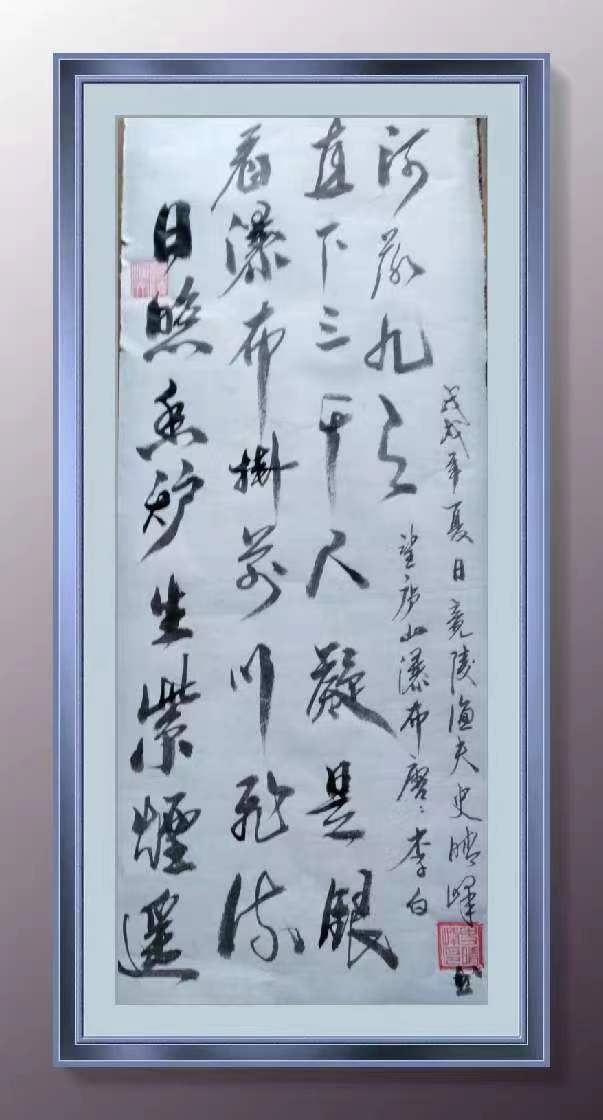 日照香炉生紫煙遥
看瀑布掛前川飛流
直下三千尺疑是銀
河落九天
望庐山瀑布唐:李白
戊戌年夏日竟陵渔夫史峰书